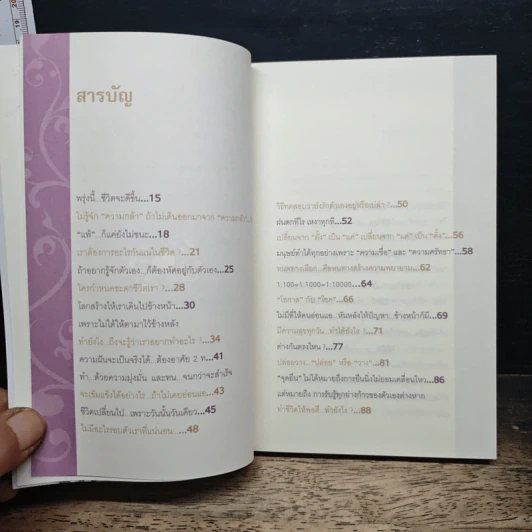 สารบัญ
พรุ่งนี้...ชีวิตจะดีขึ้น...15
ไม่รู้จัก "ความกล้า" ถ้าไม่เดินออกมาจาก "ความกลัว"...
"แพ้"...ก็แค่ยังไม่ชนะ...18
เราต้องการอะไรกันแน่ในชีวิต ?...21
ถ้าอยากรู้จักตัวเอง...ก็ต้องหัดอยู่กับตัวเอง...25
ใครกำหนดชะตาชีวิตเรา ?...28
โลกสร้างให้เราเดินไปข้างหน้า...30
เพราะไม่ได้ให้ตามาไว้ข้างหลัง
ทำยังไง...ถึงจะรู้ว่าเราอยากทำอะไร ?...34
ความฝันจะเป็นจริงได้...ต้องอาศัย 2 ท...41
ทำ...ด้วยความมุ่งมั่น และทน...จนกว่าจะสำเร็จ
จะเข้มแข็งได้อย่างไร...ถ้าไม่เคยอ่อนแอ...43
ชีวิตเปลี่ยนไป...เพราะวันนั้นวันเดียว...45
ไม่มีอะไรรอบตัวเราที่แน่นอน...48
วิธีทดสอบว่ายังรักตัวเองอยู่หรือเปล่า ?...50
ฝนตกทีไร เหงาทุกที...52
เปลี่ยนจาก "ตั้ง" เป็น "แค่" เปลี่ยนจาก "แค่" เป็น "ตั้ง"...56
มนุษย์ทำได้ทุกอย่างเพราะ "ความเชื่อ" และ "ความศรัทธา"...58
หมดทางเลือก...ต้องหนทางสร้างความพยายาม...62
1:100=1:1000=1:10000...64
"โอกาส" กับ "โชค"...68
ไม่มีที่ให้คนอ่อนแอ...หันหลังให้ปัญหา...ข้างหน้าก็มี...69
มีความสุขทุกวัน...ทำได้ยังไง ?...71
ต่างกันตรงไหน ?...77
ปล่อยวาง..."ปล่อย" หรือ "วาง"...81
"จุดยืน" ไม่ได้หมายถึงการยืนนิ่งไม่ยอมเคลื่อนไหว...86
แต่หมายถึง การรับรู้ทุกย่างก้าวของตัวเองต่างหาก
ทำชีวิตให้พอดี...ทำยังไง ?...88